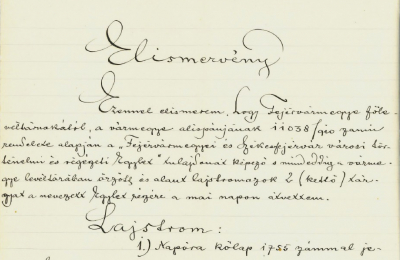 Elismervény
Ezennel elismerem, hogy Fejérvármegye főle-
véltárnokától, a vármegye alispánjának 11038/910 számu
rendelete alapján a „Fejérvármegyei és Székesfejérvár városi tör-
ténelmi és régégeti Egylet" tulajdonát képező s mindeddig a várme-
gye levéltárában őrzött és alant lajstromozok 2 (kettő) tár-
gyat a nevezett Egylet részére a mai napon átvettem.
Lajstrom:
1.) Napóra kőlap 1755 számmal je-